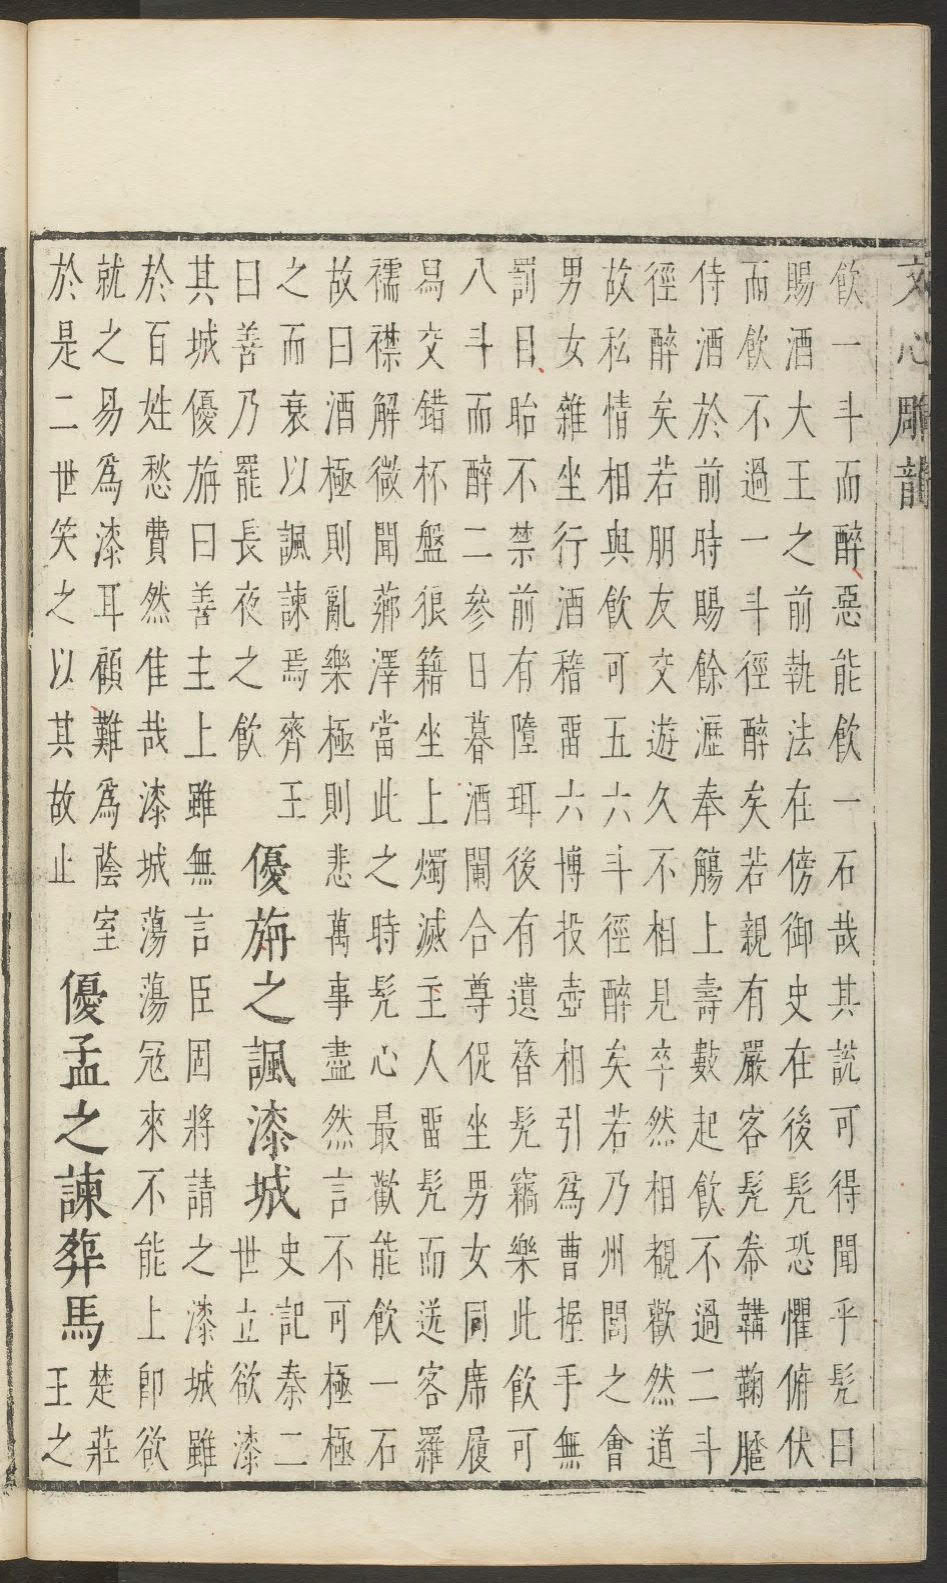 文心雕龍
飲一斗而醉惡能飲一石哉其說可得聞乎髡曰
賜酒大王之前執法在傍御史在後髡恐懼俯伏
而飲不過一斗徑醉矣若親有嚴客髡帣韝鞠䐕
侍酒於前時賜餘瀝奉觴上壽數起飲不過二斗
徑醉矣若朋友交遊久不相見卒然相覩歡然道
故私情相與飲可五六斗徑醉矣若乃州閭之會
男女雜坐行酒稽畱六博投壺相引爲曹握手無
罰目眙不禁前有墮珥後有遺簪髡竊樂此飲可
八斗而醉二參日暮酒闌合尊促坐男女同席履
舄交錯杯盤狼籍坐上燭滅主人畱髡而送客羅
襦襟解微聞薌澤當此之時髡心最歡能飲一石
故曰酒極則亂樂極則悲萬事盡然言不可極極
之而衰以諷諫焉齊王
曰善乃罷長夜之飲
優旃之諷漆城
史記秦二
世立欲漆
其城優旃曰善主上雖無言臣固將請之漆城雖
於百姓愁費然隹哉漆城蕩蕩冦來不能上卽欲
就之易爲漆耳顧難爲蔭室
於是二世笑之以其故止
優孟之諫葬馬
楚莊
王之